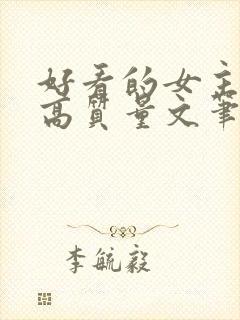 好看的女主
高质量文笔
李毓毅